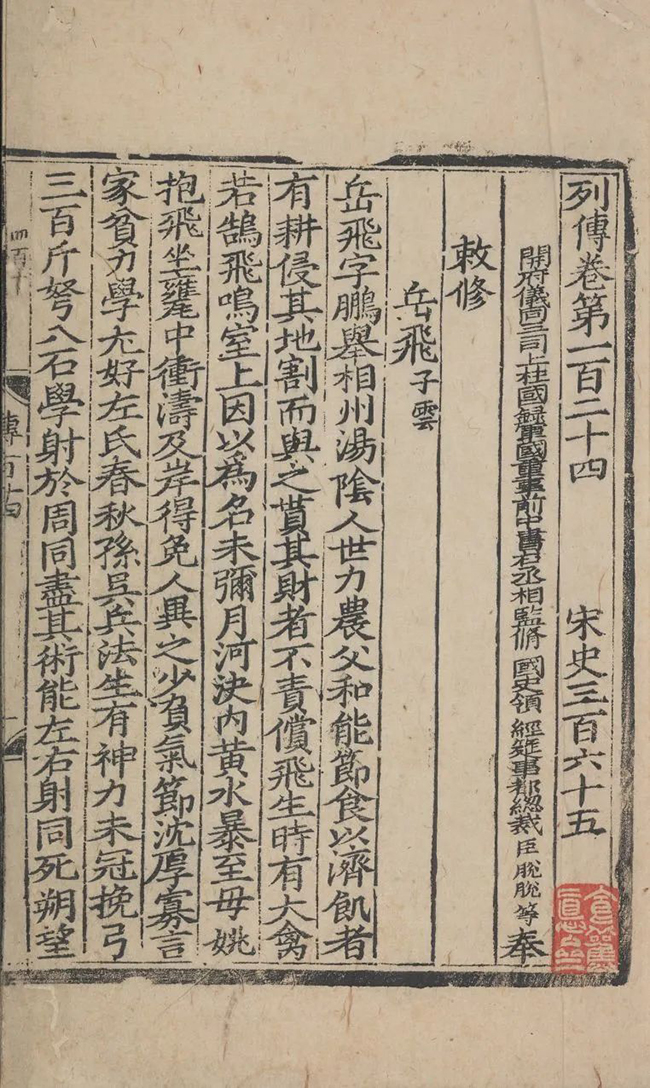 列傳卷第一百二十四 宋史三百六十五
開府儀同三司上柱國録軍國重事前中書右丞相監脩 國史領 經筵事都總裁 臣 脫脫 等 奉
敕修
岳飛 子雲
岳飛字鵬舉相州湯陰人世力農父和能節食以濟飢者
有耕侵其地割而與之貰其財者不責償飛生時有大禽
若鵠飛鳴室上因以爲名未彌月河決内黄水暴至母姚
抱飛坐甕中衝濤及岸得免人異之少負氣節沈厚寡言
家貧力學尤好左氏春秋孫吳兵法生有神力未冠挽弓
三百斤弩八石學射於周同盡其術能左右射同死朔望